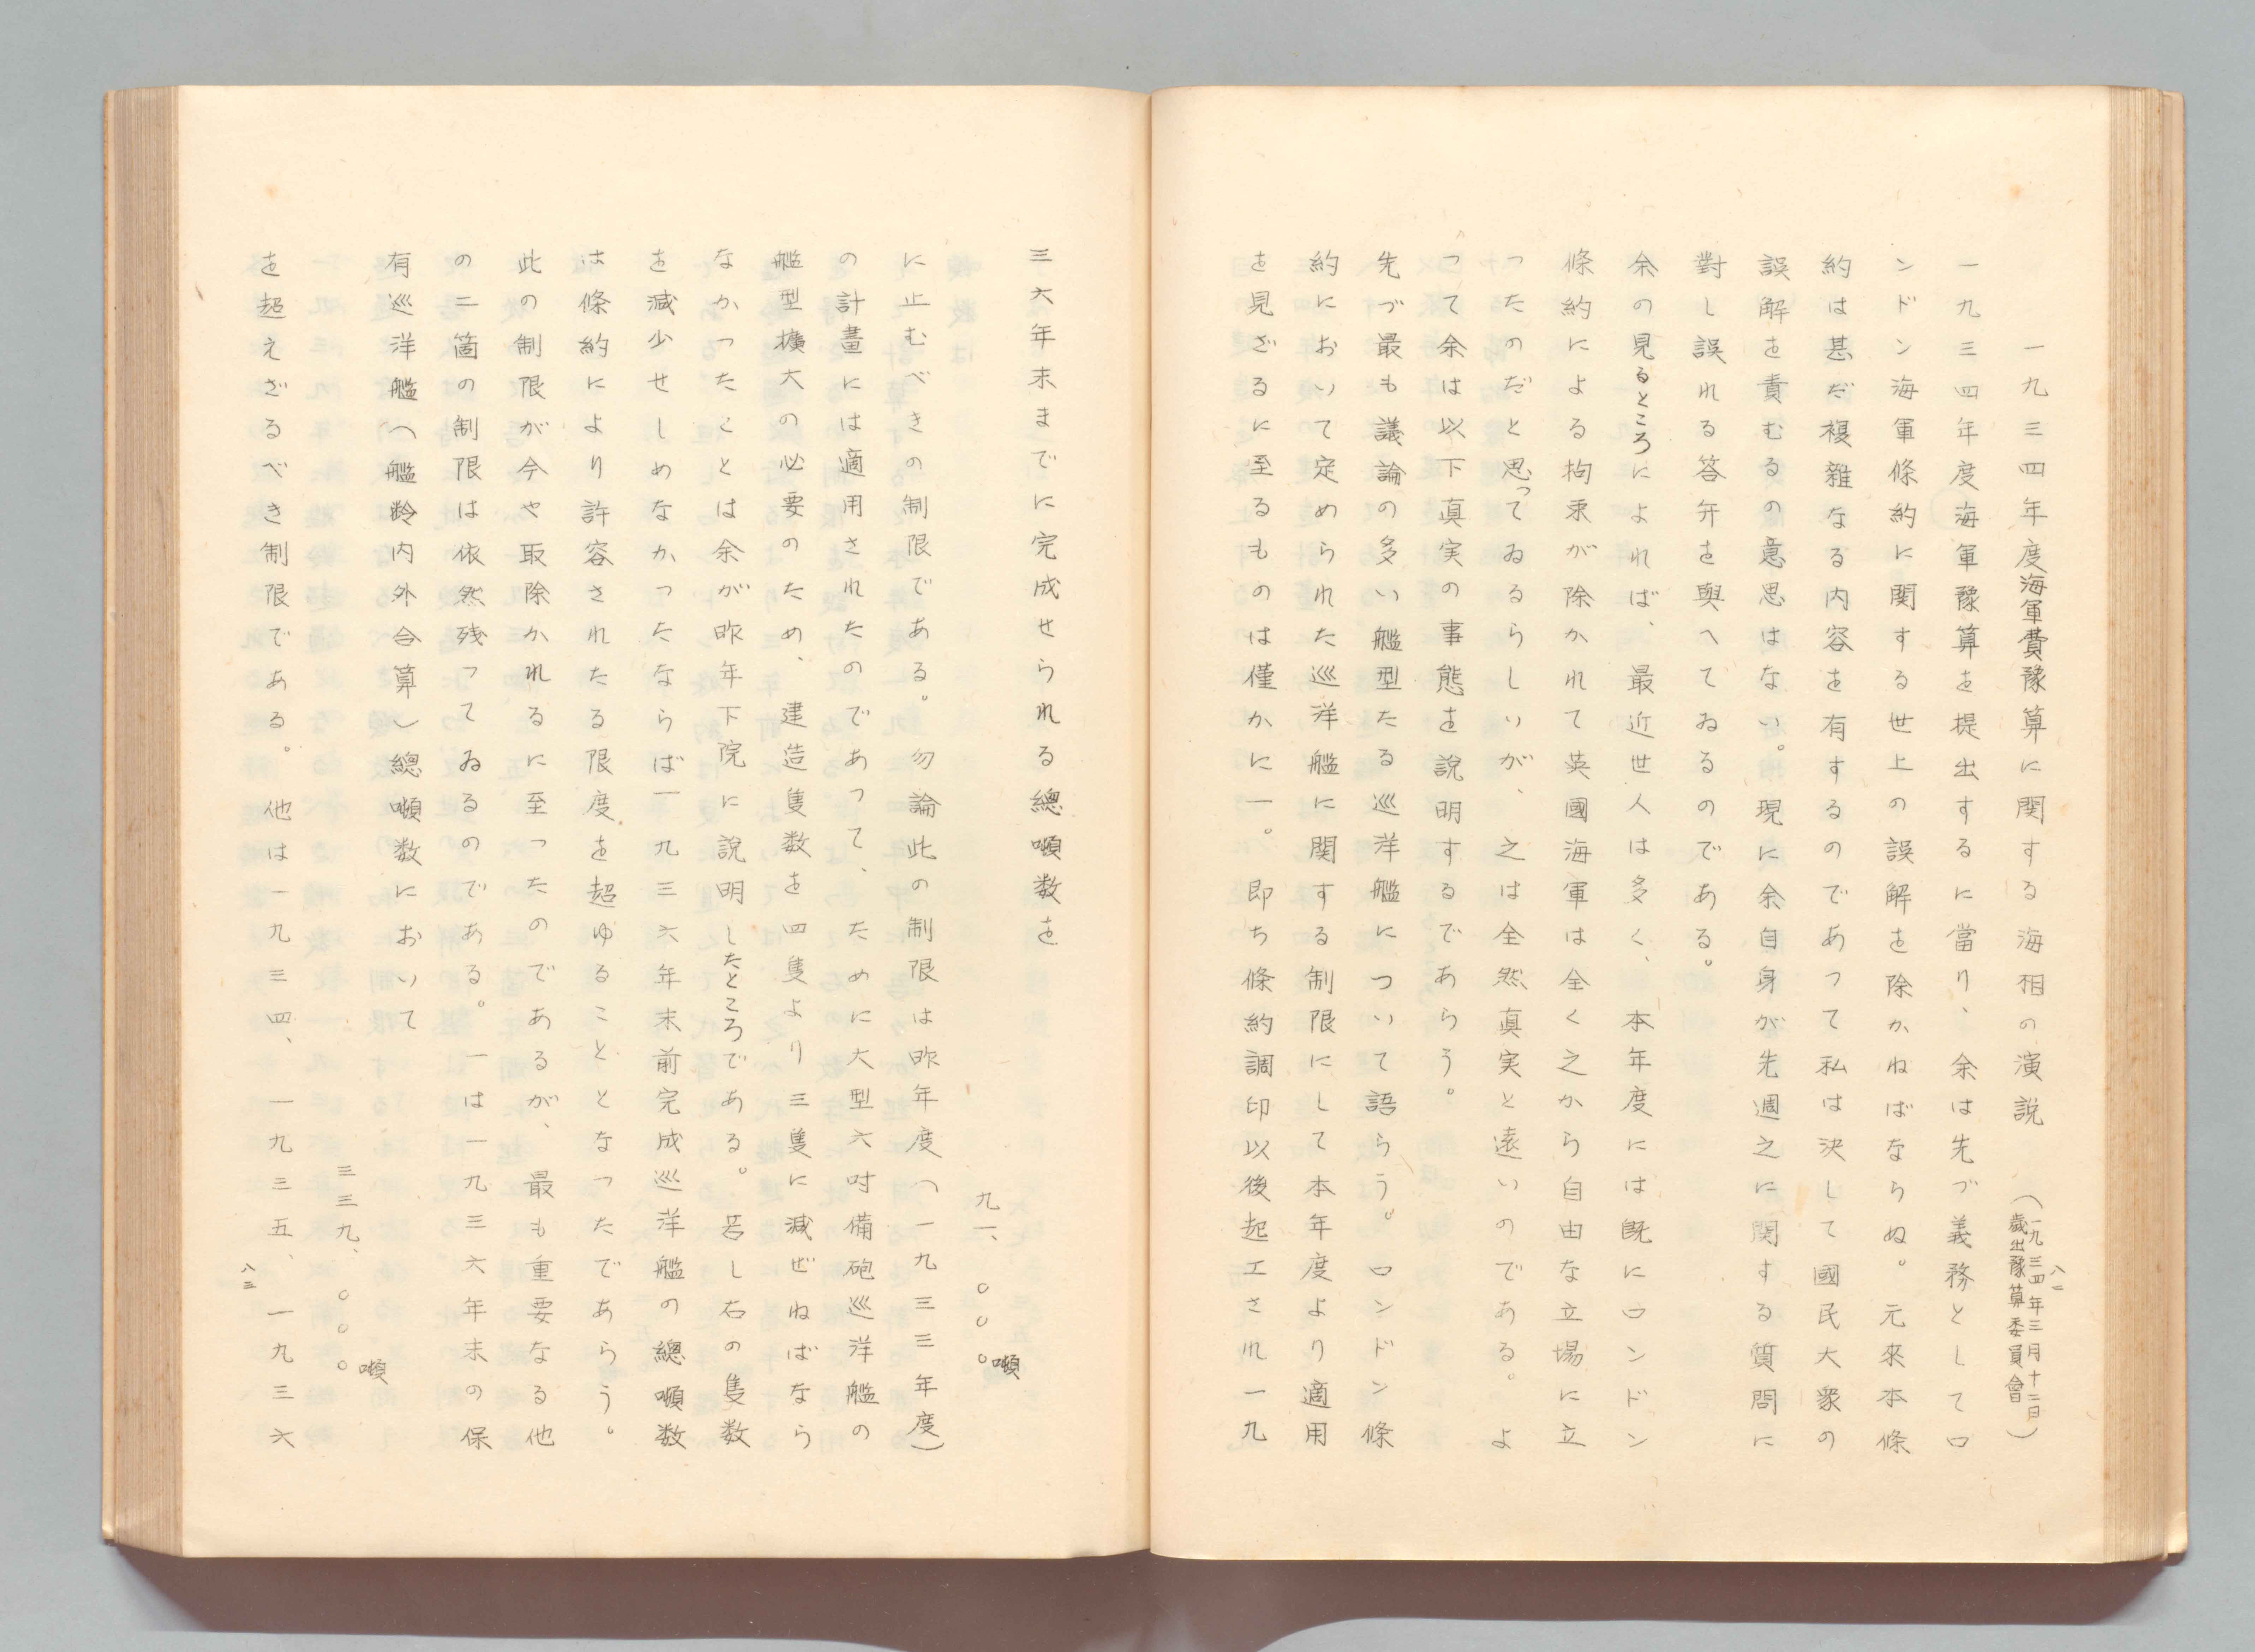 一九三四年度海軍費豫算に関する海相の演説
（一九三四年三月十二日
歳出豫算委員會）
八二
一九三四年度海軍豫算を提出するに當り、余は先づ義務としてロ
ンドン海軍條約に関する世上の誤解を除かねばならぬ。元來本條
約は甚だ複雑なる内容を有するのであつて私は決して國民大衆の
誤解を責むるの意思はない。現に余自身が先週之に関する質問に
對し誤れる答弁を與へてゐるのである。
余の見るところによれば、最近世人は多く、本年度には既にロンドン
條約による拘束が除かれて英國海軍は全く之から自由な立場に立
つたのだと思つてゐるらしいが、之は全然真実と遠いのである。よ
つて余は以下真実の事態を説明するであらう。
先づ最も議論の多い艦型たる巡洋艦について語らう。ロンドン條
約において定められた巡洋艦に関する制限にして本年度より適用
を見ざるに至るものは僅かに一。即ち條約調印以後起工され一九
三六年末までに完成せられる總噸数を
九一、〇〇〇噸
に止むべきの制限である。勿論此の制限は昨年度（一九三三年度）
の計畫には適用されたのであつて、ために大型六吋備砲巡洋艦の
艦型擴大の必要のため、建造隻数を四隻より三隻に減ぜねばなら
なかつたことは余が昨年下院に説明したところである。若し右の隻数
を減少せしめなかつたならば一九三六年末前完成巡洋艦の總噸数
は條約により許容されたる限度を超ゆることとなつたであらう。
此の制限が今や取除かれるに至つたのであるが、最も重要なる他
の二箇の制限は依然残つてゐるのである。一は一九三六年末の保
有巡洋艦（艦齢内外合算）總噸数において
三三九、〇〇〇噸
を超えざるべき制限である。他は一九三四、一九三五、一九三六
八三